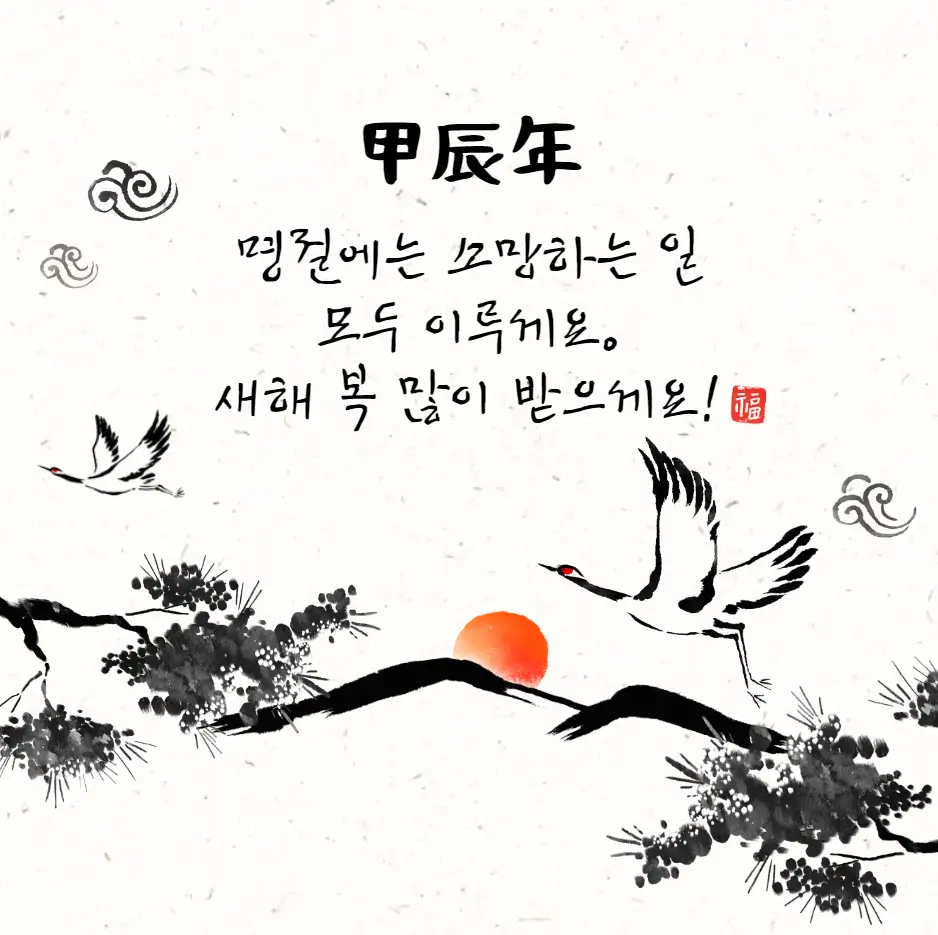 甲辰年
명절에는 소망하는 일
모두 이루세요.
새해 복 많이 받으세요! 福